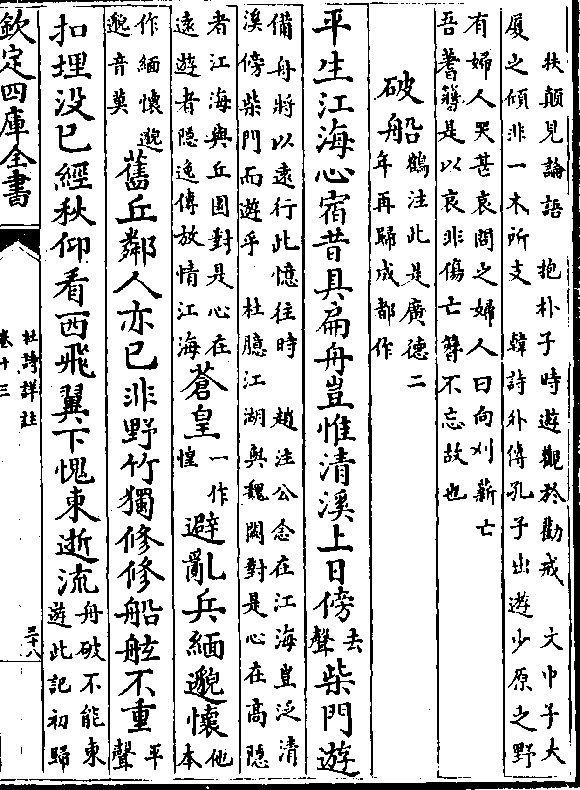 扶顛見論語　抱朴子時遊觀於勸戒　文中子大
厦之傾非一木所支　韓詩外傳孔子出遊少原之野
有婦人哭甚哀問之婦人曰向刈薪亡
吾蓍簪是以哀非傷亡簪不忘故也
破船鶴注此是廣德二年再歸成都作
平生江海心宿昔具扁舟豈惟清溪上日傍去聲柴門遊
備舟將以遠行此憶往時　趙注公念在江海豈泛清
溪傍柴門而遊乎　杜臆江湖與魏闕對是心在高隱
者江海與丘園對是心在遠遊者隱逸傳放情江海蒼皇一作惶避亂兵緬邈懷他本
作緬懷邈邈音莫舊丘鄰人亦已非野竹獨修修船舷不重平聲
扣埋没已經秋仰看西飛翼下愧東逝流舟破不能東遊此記初歸
欽定四庫全書
杜詩詳註
卷十三
三十八